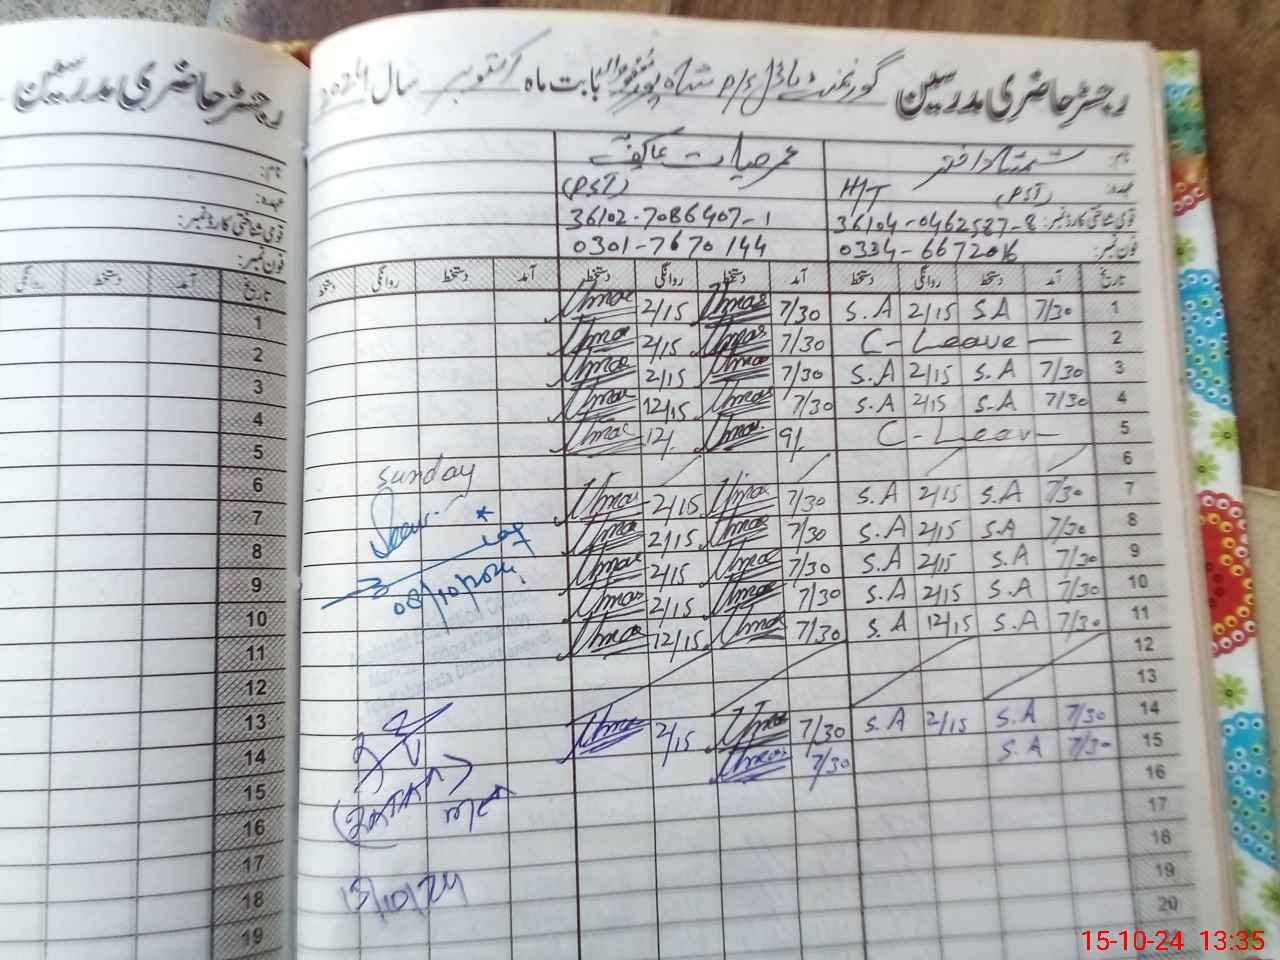 رجسٹر حاضری مدرسین
رجسٹر حاضری مدرسین گورنمنٹ ماڈل P/S شاہ پور بابت ماہ اکتوبر سال
نام:
عہدہ:
قومی شناختی کارڈ نمبر:
فون نمبر:
نام: شمشاد اختر
عہدہ: (PST) HT
(PST)
قومی شناختی کارڈ نمبر: 36104-0462587-8 36102-7086407-1
فون نمبر: 0334-6672016 0301-7670144
تاریخ آمد دستخط روانگی دستخط آمد دستخط روانگی دستخط آمد دستخط روانگی دستخط
1 7/30 S.A 2/15 S.A 7/30 Umar 2/15 Umar
2 C-Leave — 7/30 Umar 2/15 Umar
3 7/30 S.A 2/15 S.A 7/30 Umar 2/15 Umar
4 7/30 S.A 2/15 S.A 7/30 Umar 12/15 Umar
5 C-Leav- 9/. Umar. 12/. Umar
6 Sunday
7 7/30 S.A 2/15 S.A 7/30 Umar 2/15 Umar
8 7/30 S.A 2/15 S.A 7/30 Umar 2/15 Umar
9 7/30 S.A 2/15 S.A 7/30 Umar 2/15 Umar
10 7/30 S.A 2/15 S.A 7/30 Umar 2/15 Umar
11 7/30 S.A 12/15 S.A 7/30 Umar 12/15 Umar
12
13
14 7/30 S.A 2/15 S.A 7/30 Umar 2/15 Umar
15 7/30 S.A 7/30 Umar
16
17
18
19
20
Seen
08/10/2024
Assistant Education Officer
15/10/24
تاریخ آمد دستخط روانگی
1
2
3
4
5
6
7
8
9
10
11
12
13
14
15
16
17
18
19
15-10-24 13:35